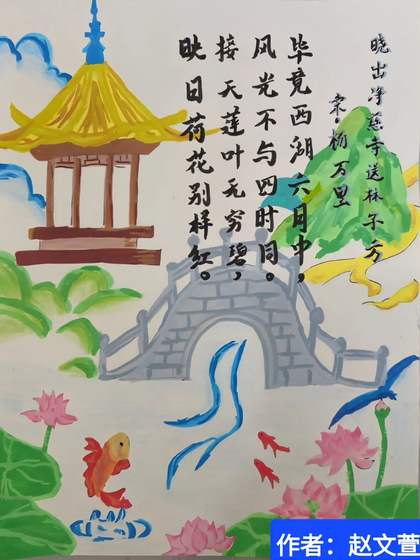 晓出净慈寺送林子方
宋·杨万里
毕竟西湖六月中，
风光不与四时同。
接天莲叶无穷碧，
映日荷花别样红。
作者：赵文萱